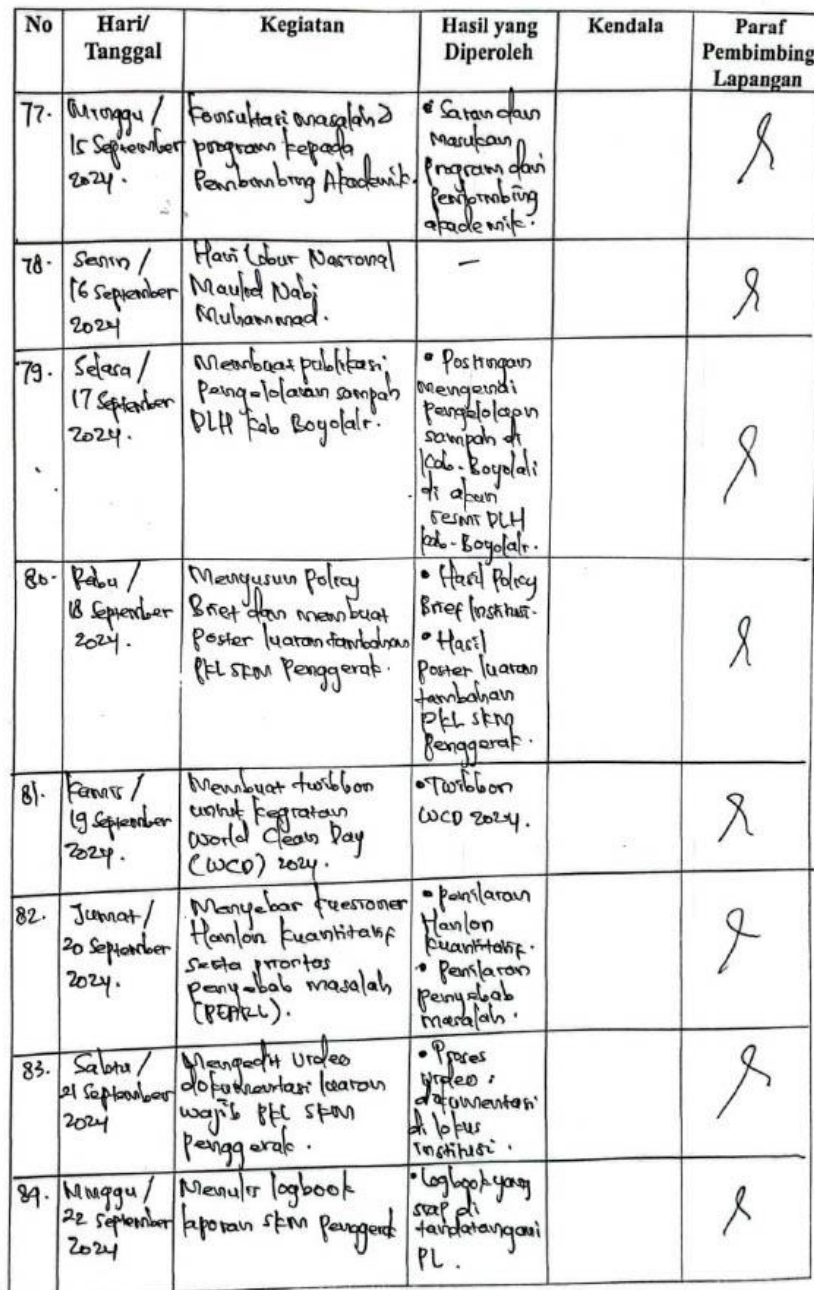 No
Hari/
Tanggal
Kegiatan
Hasil yang
Diperoleh
Kendala
Paraf
Pembimbing
Lapangan
77.
Minggu /
15 September
2024.
Konsultasi masalah2
program kepada
Pembimbing Akademik.
• Saran dan
masukan
program dari
pembimbing
akademik.
78.
Senin /
16 September
2024
Hari Libur Nasional
Maulid Nabi
Muhammad.
—
79.
Selasa /
17 September
2024.
Membuat publikasi
Pengelolaan sampah
DLH Kab Boyolali.
• Postingan
mengenai
pengelolaan
sampah di
Kab. Boyolali
di akun
resmi DLH
Kab. Boyolali.
80.
Rabu /
18 September
2024.
Menyusun Policy
Brief dan membuat
Poster luaran tambahan
PKL SKM Penggerak.
• Hasil Policy
Brief Institusi.
• Hasil
poster luaran
tambahan
PKL SKM
Penggerak.
81.
Kamis /
19 September
2024.
Membuat twibbon
untuk kegiatan
World Clean Day
(WCD) 2024.
• Twibbon
WCD 2024.
82.
Jumat /
20 September
2024.
Menyebar kuesioner
Hanlon kuantitatif
serta prioritas
penyebab masalah
(PEARL).
• penilaian
Hanlon
kuantitatif.
• Penilaian
penyebab
masalah.
83.
Sabtu /
21 September
2024
Mengedit video
dokumentasi luaran
wajib PKL SKM
penggerak.
• Proses
video
dokumentasi
di lokus
institusi.
84.
Minggu /
22 September
2024
Menulis logbook
laporan SKM Penggerak
• Logbook yang
siap di
tandatangani
PL.